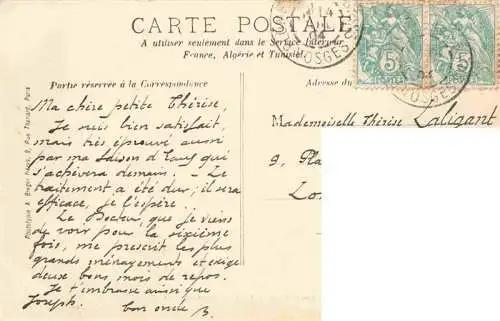 CARTE POSTALE
A utiliser seulement dans le Service Intérieur
France, Algérie et Tunisie
Partie réservée à la Correspondance
Adresse du
Ma chère petite Thérèse,
Je suis bien satisfait,
mais très éprouvé aussi
par ma saison d'eaux qui
s'achèvera demain. - Le
traitement a été dur; il sera
efficace, je l'espère.
Le Docteur que je viens
de voir pour la sixième
fois, me prescrit les plus
grands ménagements et exige
deux bons mois de repos.
Je t'embrasse ainsi que
Joseph.
bon oncle
Mademoiselle Thérèse Laligant
9, Pla
5
5
VOSGES
VOSGES